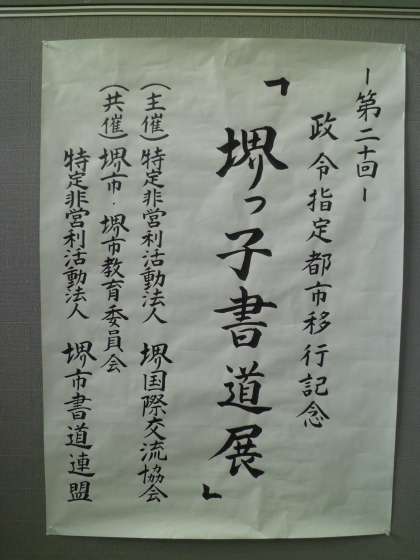 ー第二十回ー
政令指定都市移行記念
「堺っ子書道展」
(主催)特定非営利活動法人 堺国際交流協会
(共催)堺市・堺市教育委員会
特定非営利活動法人 堺市書道連盟